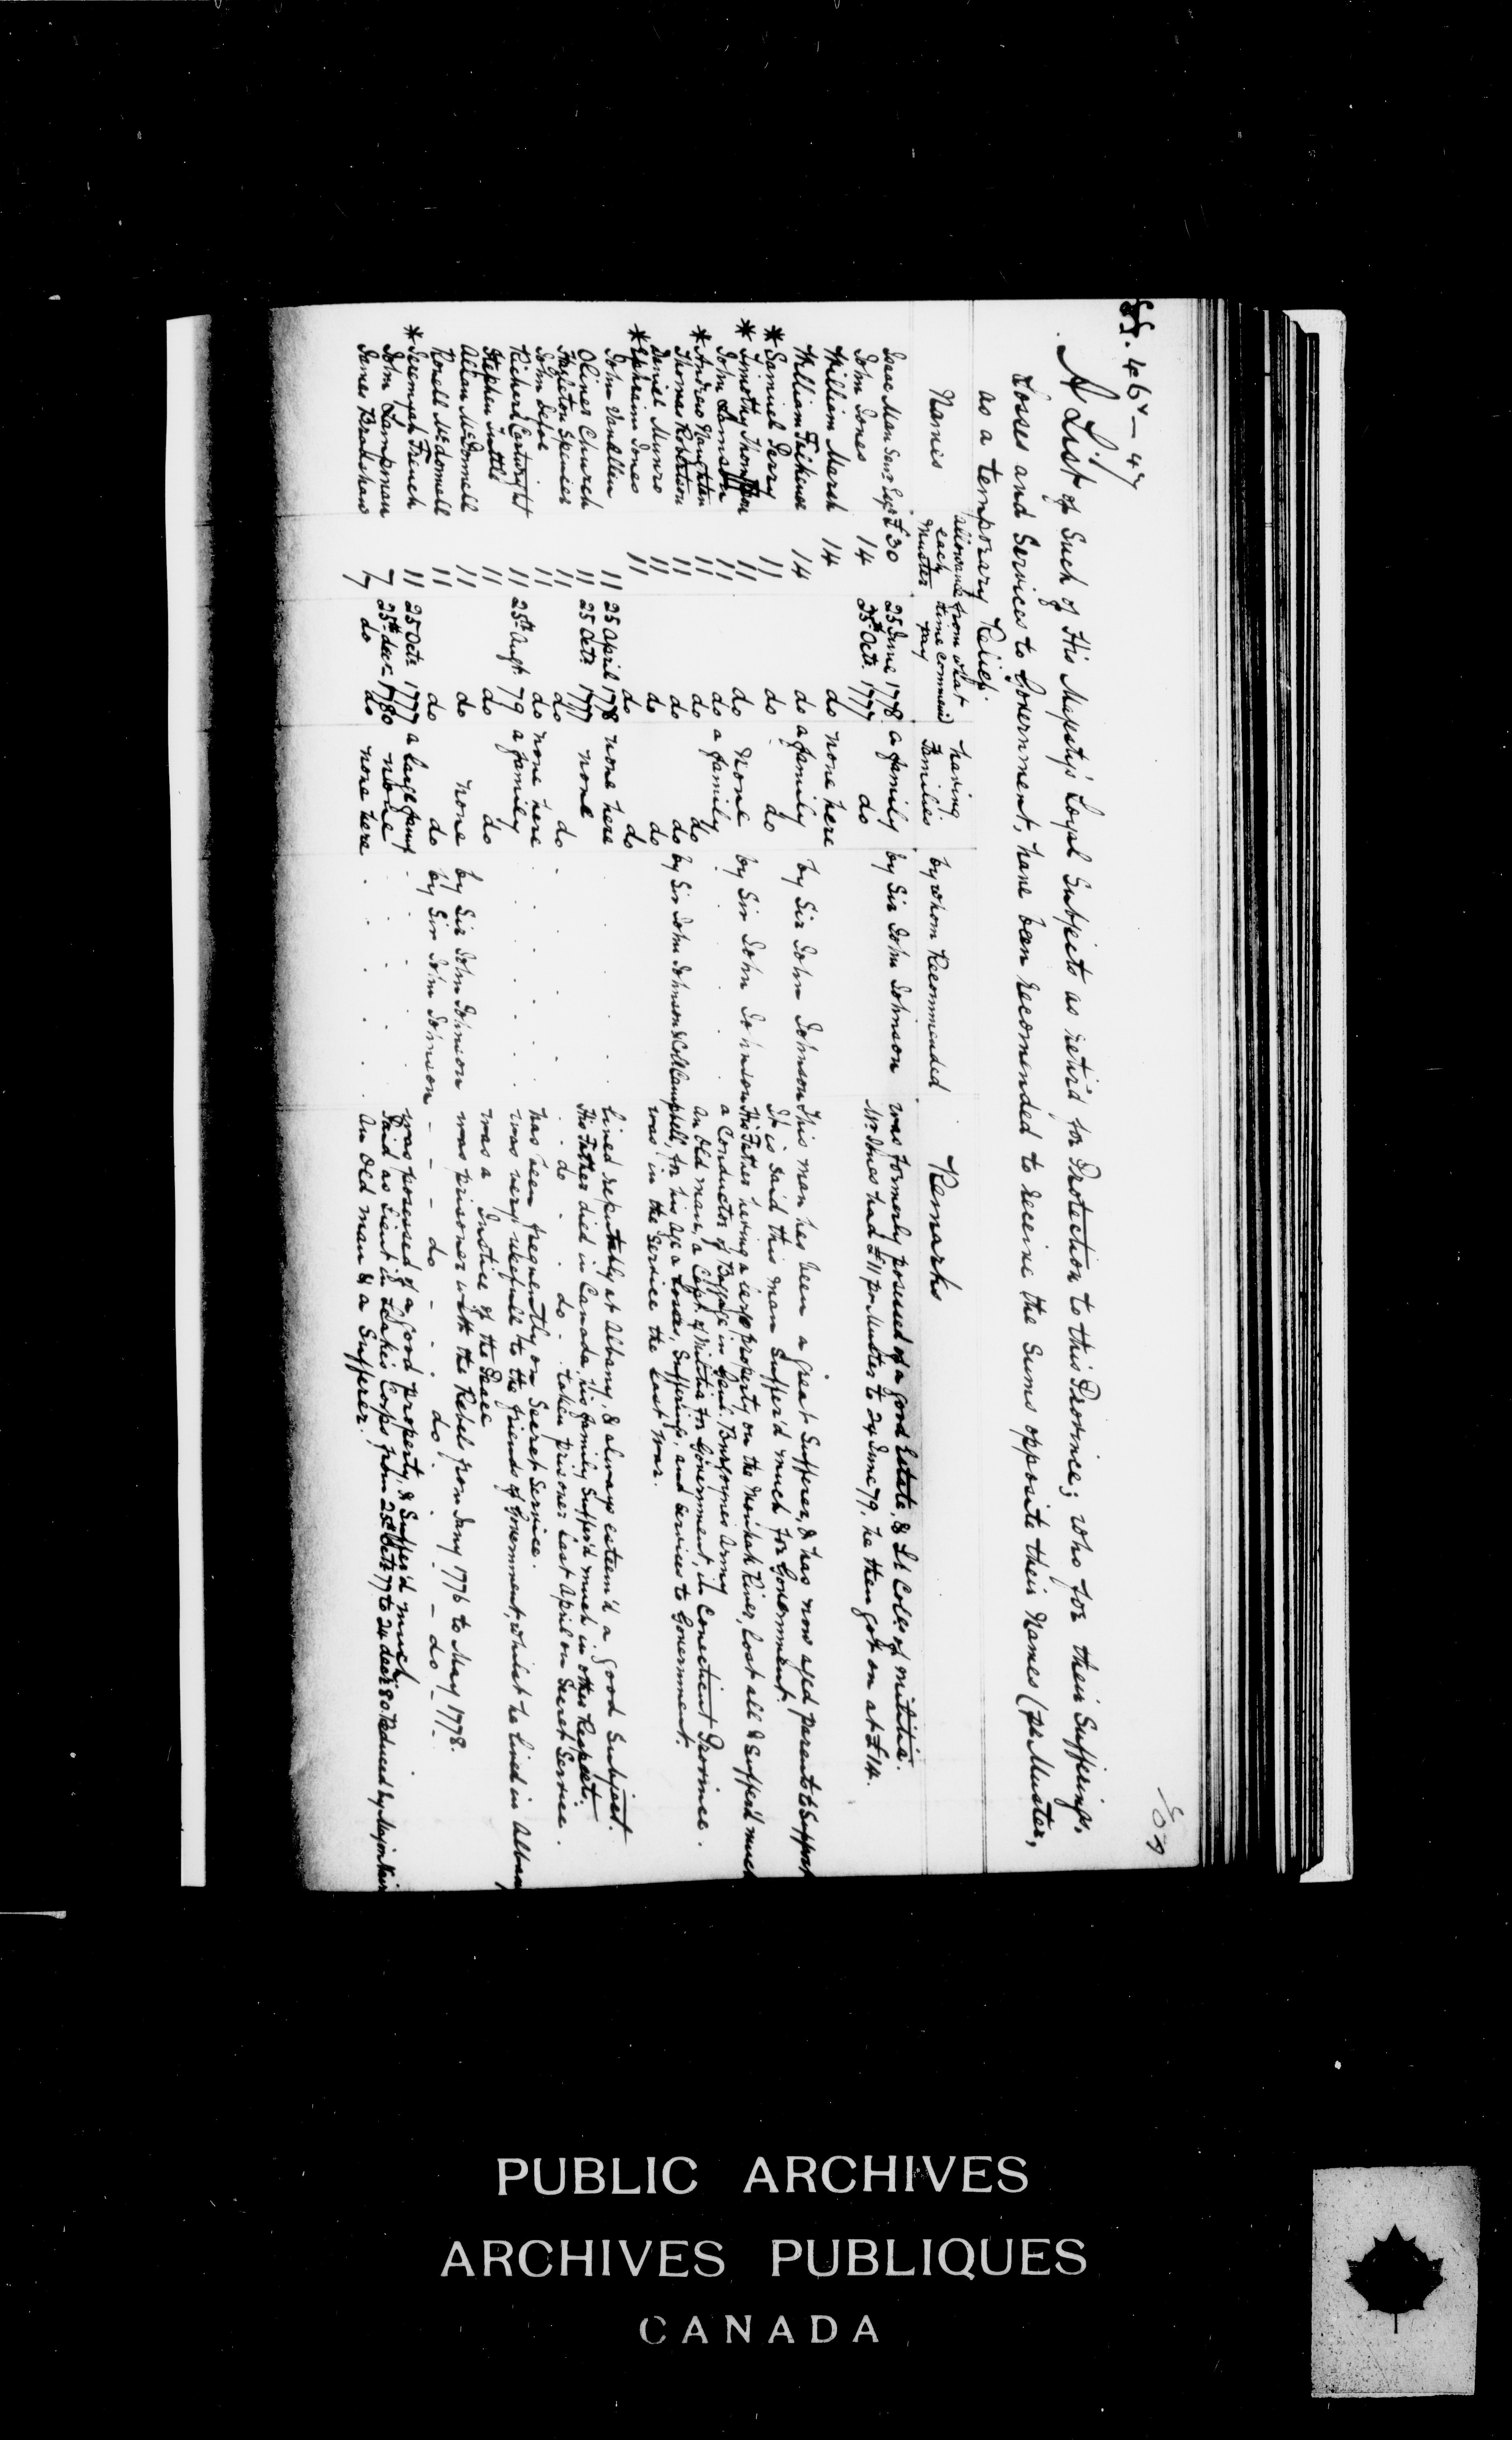 ff. 46v - 47
A List of Such of His Majesty's Loyal Subjects as retir'd for Protection to this Province; who for their Sufferings,
Losses and Services to Government, have been recommended to receive the Sums opposite their Names (pr. Muster,
as a temporary Relief.
Names allowance each Muster from what time commenc'd pay having Families by whom Recommended Remarks
Isaac Man Senr. Esqr. £30 25 June 1778 a family by Sir John Johnson was formerly possessed of a good Estate, & Lt Coll. of militia.
John Jones 14 25th Octr. 1777 do Mr. Jones had £11 pr Muster to 24 June 79, he then got on at £14.
William Marsh 14 do none here
William 14 do a family by Sir John Johnson This man has been a great Sufferer, & has now aged parents to Support
* Samuel Perry 11 do do It is said this man Suffer'd much for Government.
* Timothy Thompson 11 do None by Sir John Johnson His Father having a large property on the River, lost all & Suffer'd much
John Lamson 11 do a family a Conductor of Baggage in Genl. Burgoynes Army
* Andrew Naughton 11 do do An Old man, a Capt. of Militia for Government, in Conecticut Province.
Thomas Robertson 11 do do by Sir John Johnson & Coll Campbell, for his Age a Losses, Sufferings, and Services to Government.
Daniel Munro 11 do do was in the Service the Last War.
* Ephraim Jones 11 do do
John Vanallin 11 25 April 1778 none here Lived reputably at Albany, & always esteem'd a good Subject.
Oliver Church 11 25 Octr. 1777 none His Father died in Canada, his family Suffer'd much in other Respects.
Hazleton Spencer 11 do do do do taken prisoner Last April on Secret Service.
John Defoe 11 do none here has been frequently on Secret Service.
Richard Cartwright 11 25th Augt. 79 a family was very usefull to the friends of Government, whilst he lived in Albany
Stephen Tuttle 11 do do was a Justice of the Peace
Allan McDonnell 11 do none by Sir John Johnson was prisoner with the Rebels from Jany 1776 to May 1778.
Ronell McDonnell 11 do do by Sir John Johnson - - - do - - do - - do -
* Jeremyah French 11 25 Octr. 1777 a large family was possessed of a good property, & Suffer'd much
John Lampman 7 25th decr. 1780 none Paid as Lieut in Leakes Corps from 25th Octr 77 to 24 decr 80. Reduced by Major
James Bradshaw 7 do do none here An Old man & a Sufferer.
PUBLIC ARCHIVES
ARCHIVES PUBLIQUES
CANADA